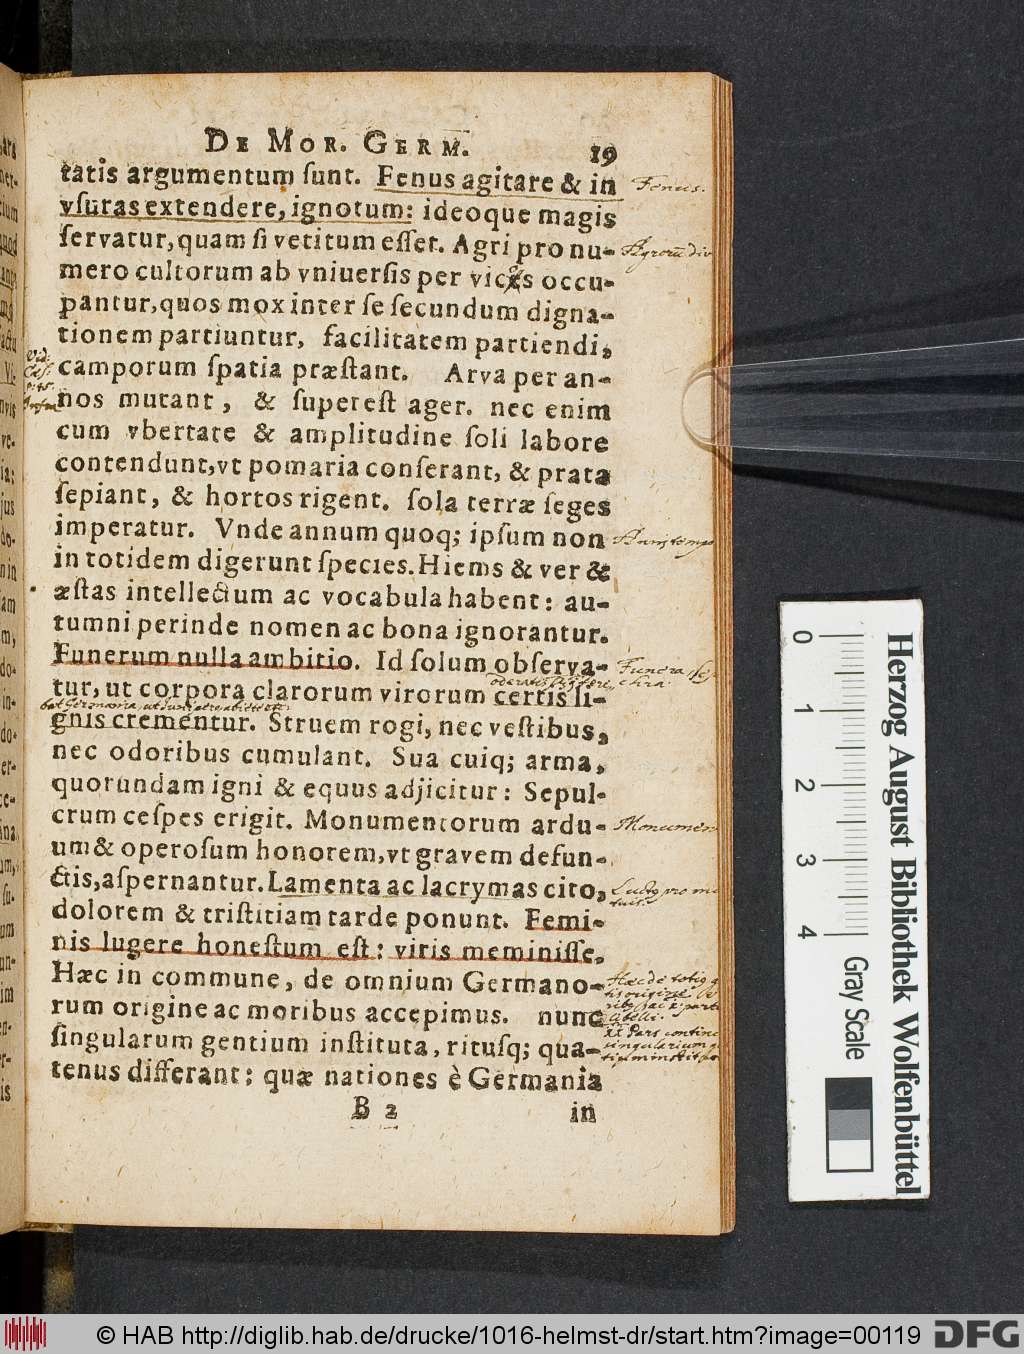 DE MOR. GERM. 19
tatis argumentum ſunt. Fenus agitare & in
vſuras extendere, ignotum: ideoque magis
ſervatur, quam ſi vetitum eſſet. Agri pro nu-
mero cultorum ab vniuerſis per vices occu-
pantur, quos mox inter ſe ſecundum digna-
tionem partiuntur, facilitatem partiendi,
camporum ſpatia præſtant. Arva per an-
nos mutant, & ſupereſt ager. nec enim
cum vbertate & amplitudine ſoli labore
contendunt, vt pomaria conſerant, & prata
ſepiant, & hortos rigent. ſola terræ ſeges
imperatur. Vnde annum quoq; ipſum non
in totidem digerunt ſpecies. Hiems & ver &
æſtas intellectum ac vocabula habent: au-
tumni perinde nomen ac bona ignorantur.
Funerum nulla ambitio. Id ſolum obſerva-
tur, ut corpora clarorum virorum certis li-
gnis crementur. Struem rogi, nec veſtibus,
nec odoribus cumulant. Sua cuiq; arma,
quorundam igni & equus adjicitur: Sepul-
crum ceſpes erigit. Monumentorum ardu-
um & operoſum honorem, vt gravem defun-
ctis, aſpernantur. Lamenta ac lacrymas cito,
dolorem & triſtitiam tarde ponunt. Femi-
nis lugere honeſtum eſt: viris meminiſſe.
Hæc in commune, de omnium Germano-
rum origine ac moribus accepimus. nunc
ſingularum gentium inſtituta, rituſq; qua-
tenus differant; quæ nationes è Germania
B 2 in
Fenus.
Agrorū div
Funera
Monumen
Herzog August Bibliothek Wolfenbüttel
0 1 2 3 4
Gray Scale
© HAB http://diglib.hab.de/drucke/1016-helmst-dr/start.htm?image=00119
DFG